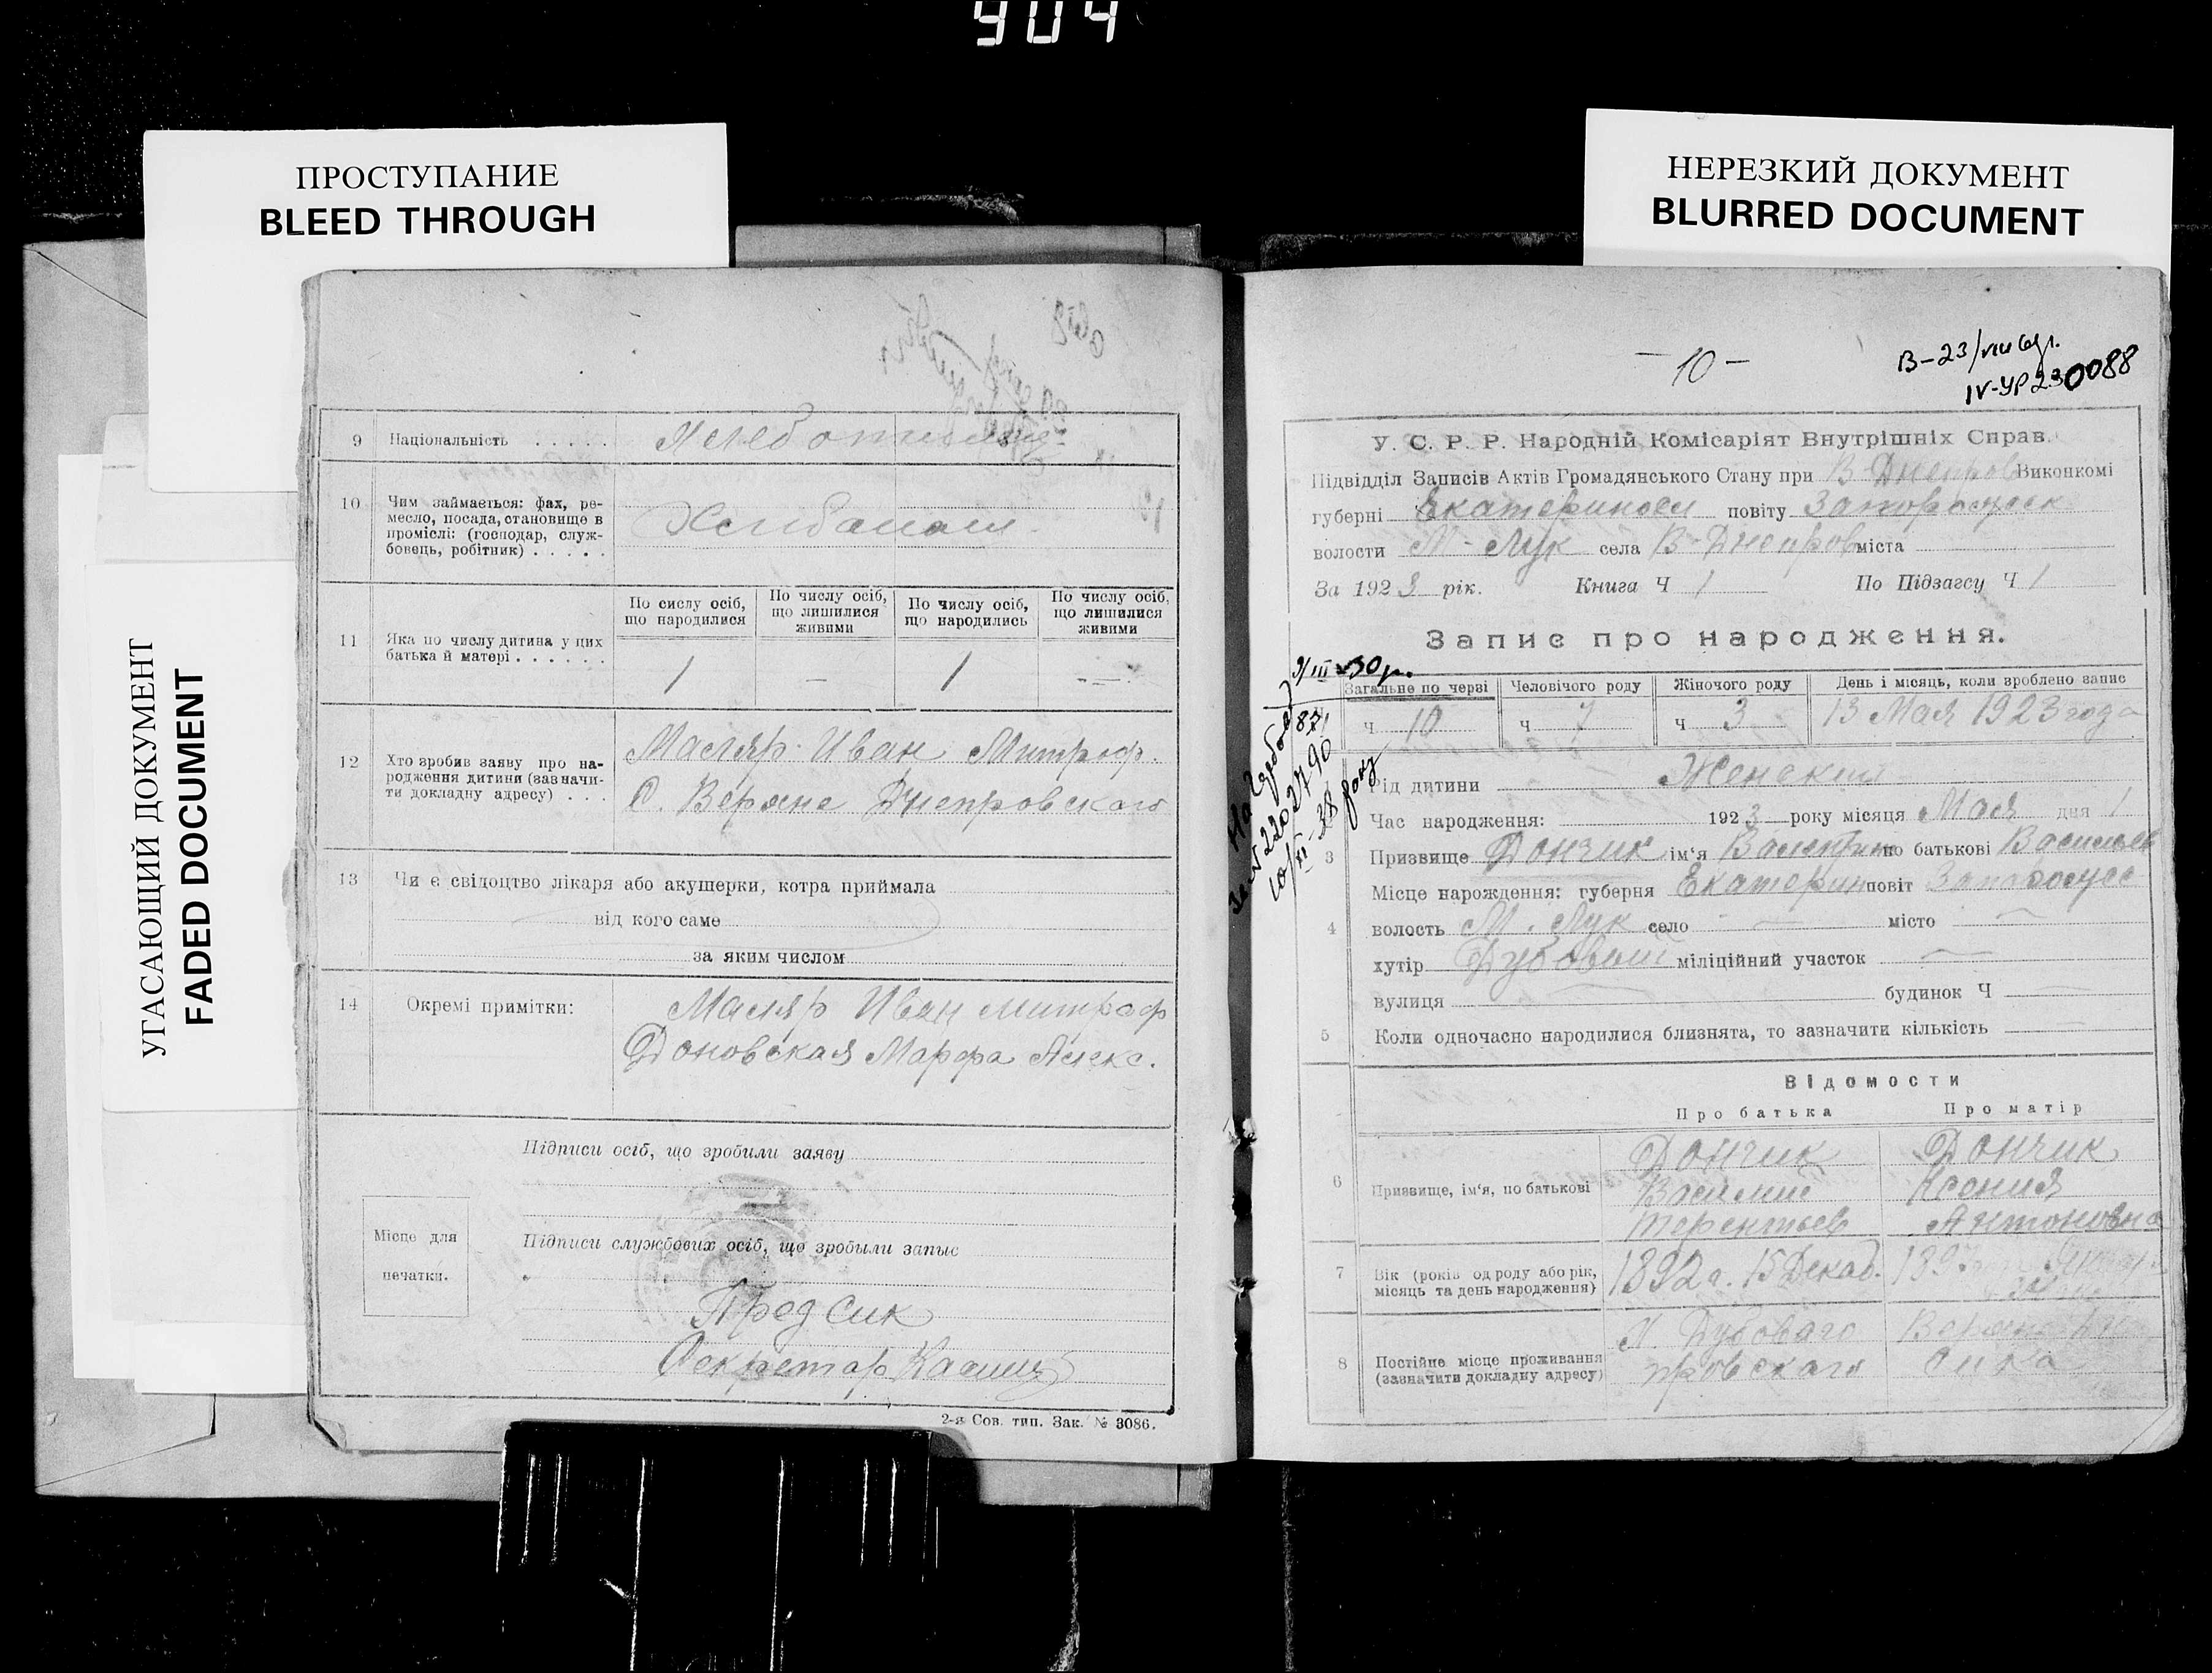 904
ПРОСТУПАНИЕ
BLEED THROUGH
НЕРЕЗКИЙ ДОКУМЕНТ
BLURRED DOCUMENT
УГАСАЮЩИЙ ДОКУМЕНТ
FADED DOCUMENT
9 Національність
10 Чим займається: фах, ре-
месло, посада, становище в
промислі: (господар, служ-
бовець, робітник)
По сислу осіб, що народилися
По числу осіб, що лишилися живими
По числу осіб, що народились
По числу осіб, що лишилися живими
11 Яка по числу дитина у цих
батька й матері
1 — 1 —
12 Хто зробив заяву про на-
родження дитини (зазначи-
ти докладну адресу)
Маляр Иван Митроф.
С. Верхне Днепровского
13 Чи є свідоцтво лікаря або акушерки, котра приймала
від кого саме
за яким числом
14 Окремі примітки:
Маляр Иван Митроф
Доновская Марфа Алекс.
Підписи осіб, що зробили заяву
Місце для
печатки.
Підписи службових осіб, що зробыли запыс
Пред Сик
Секретар
2-я Сов. тип. Зак. № 3086.
— 10 —
0088
У. С. Р. Р. Народній Комісаріят Внутрішніх Справ.
Підвідділ Записів Актів Громадянського Стану при В-Днепров Виконкомі
губерні Екатеринос повіту Запорожск
волости М-Лук села В-Днепров міста
За 1923 рік. Книга Ч 1 По Підзагсу Ч 1
Запис про народження.
Загальне по черві Человічого роду Жіночого роду День і місяць, коли зроблено запис
ч 10 ч 7 ч 3 13 Мая 1923 года
Рід дитини Женский
Час народження: 1923 року місяця Мая дня 1
3 Призвище Дончик ім'я Валентина по батькові Васильев
Місце нарождення: губерня Екатерин повіт
4 волость М. Лук село — місто —
хутір Дубовый міліційний участок —
вулиця — будинок Ч —
5 Коли одночасно народилися близнята, то зазначити кількість —
Відомости
Про батька Про матір
6 Призвище, ім'я, по батькові
Дончик Дончик
Василие Ксения
Терентьев Антоновна
7 Вік (років од роду або рік,
місяць та день народження)
1892 г. 15 Декаб.
8 Постійне місце проживання
(зазначити докладну адресу)
Х. Дубоваго
провскаго